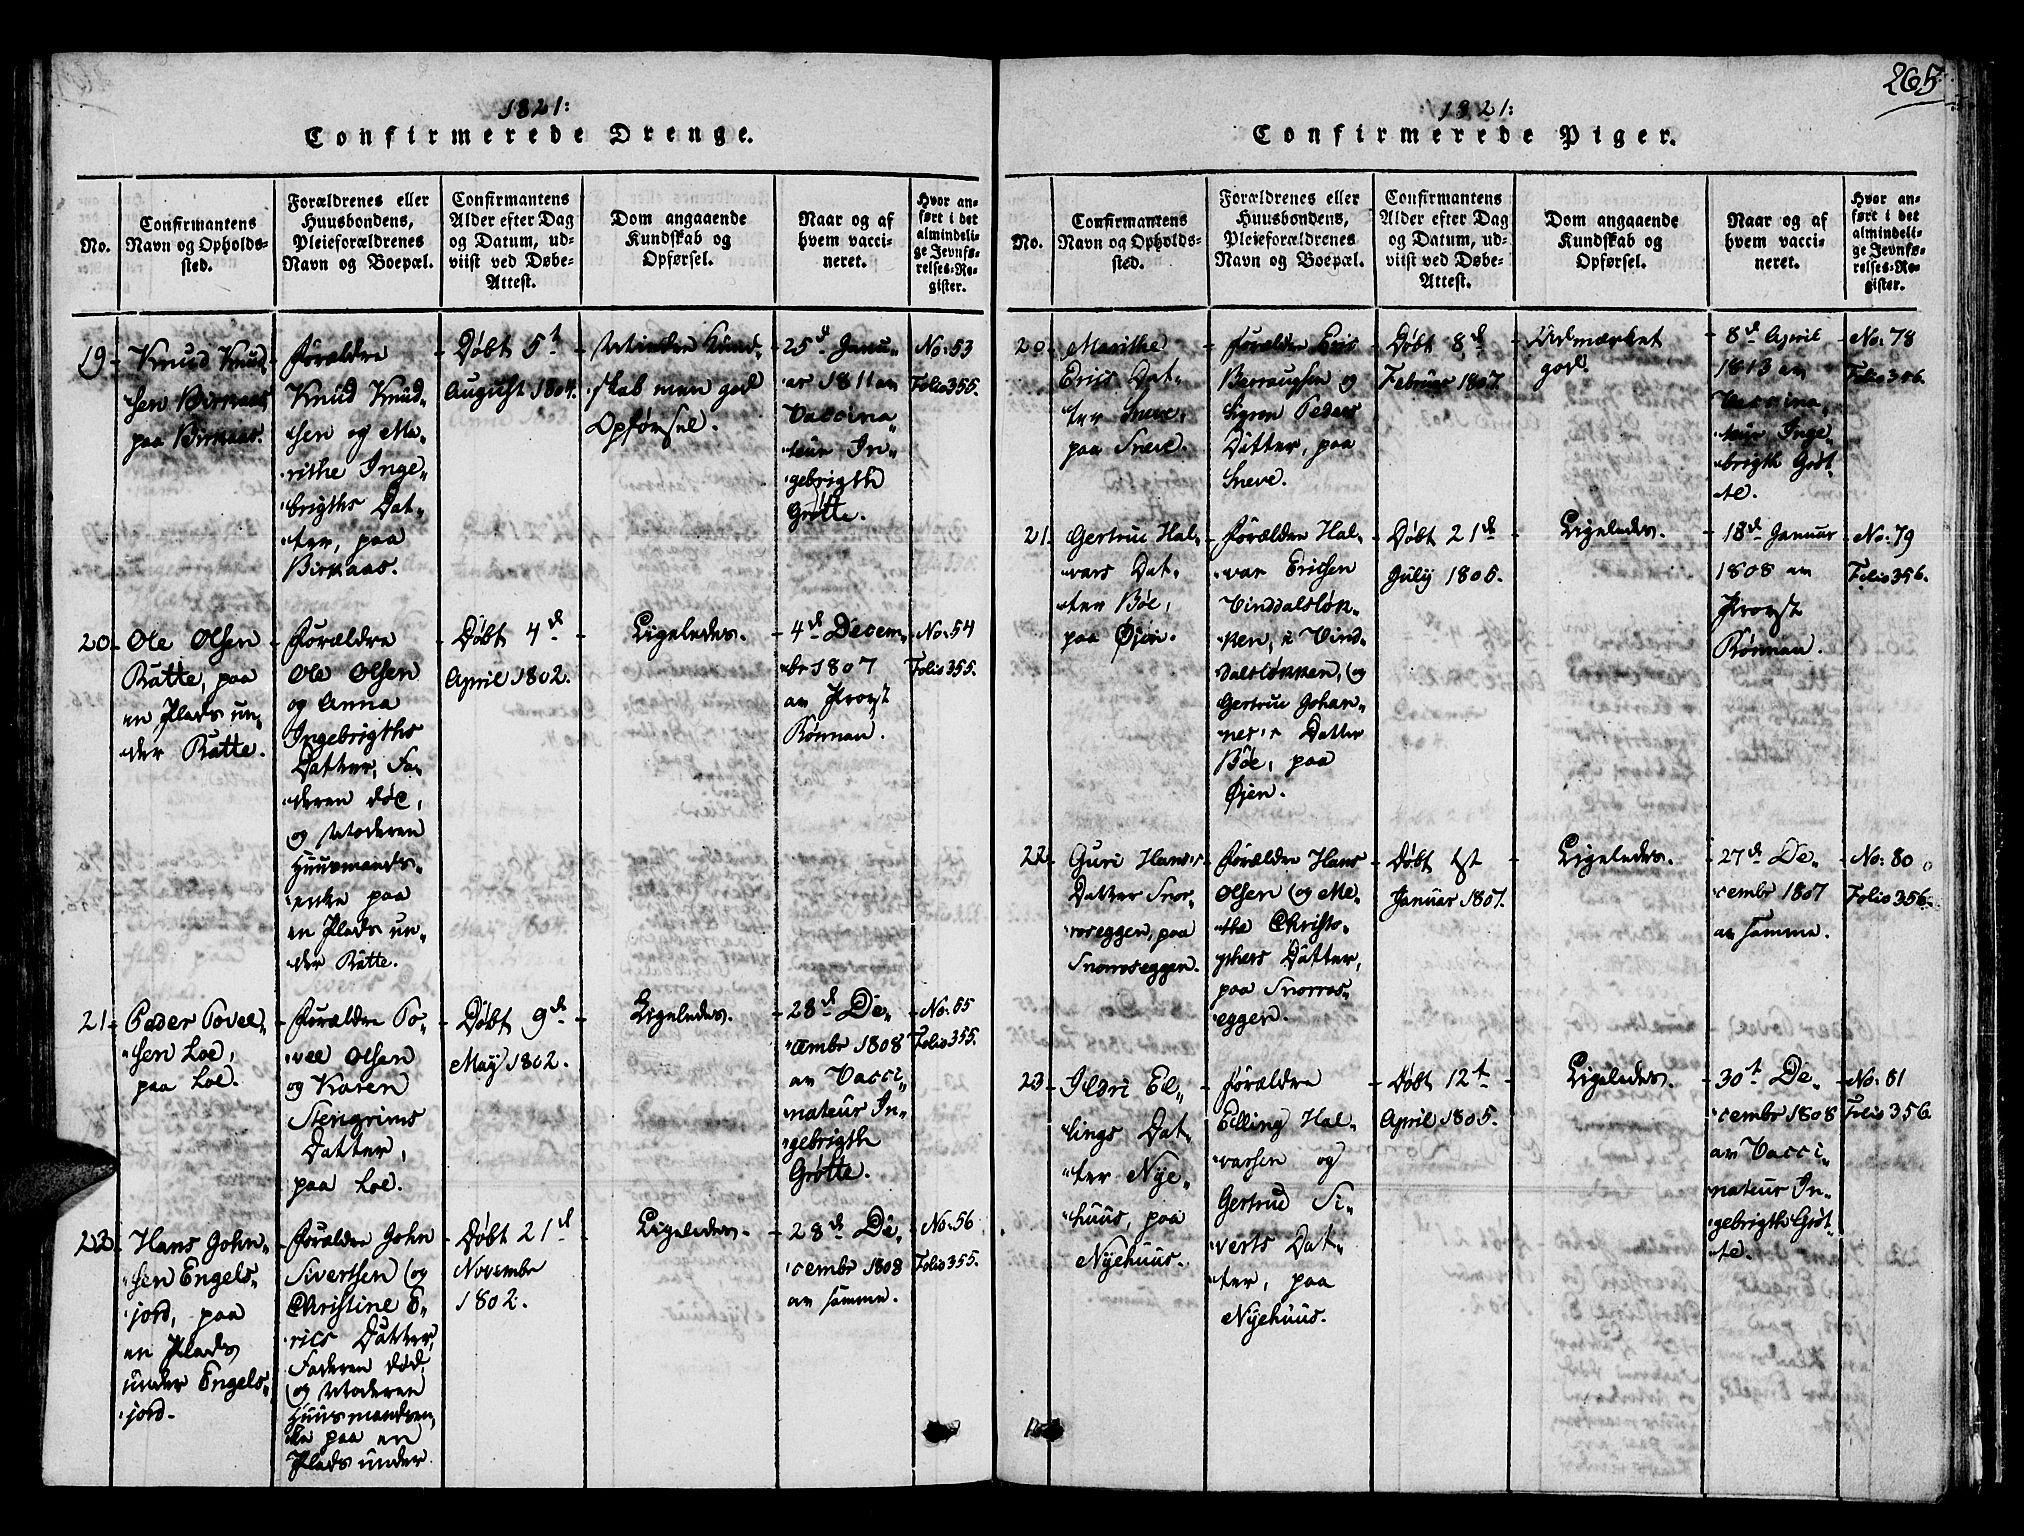 265.
1821:
Confirmerede Drenge.
No.
Confirmantens
Navn og Opholds-
sted.
Forældrenes eller
Huusbondens,
Pleieforældrenes
Navn og Boepæl.
Confirmantens
Alder efter Dag
og Datum, ud-
viist ved Døbe-
Attest.
Dom angaaende
Kundskab og
Opførsel.
Naar og af
hvem vacci-
neret.
Hvor an-
ført i det
almindeli-
ge Jevnfø-
relses-Re-
gister.
19-
Knud Knud
sen Birkaas
paa Birkaas.
Forældre
Knud Knud-
sen og Ma-
rithe Inge-
brigths Dat-
ter, paa
Birkaas.
Døbt 5t
August 1804.
Mindre Kund-
skab men god
Opførsel.
25d Janu-
ar 1811 av
Vaccina-
teur In-
gebrigth
Grøtte.
No: 53
Folio 355.
20-
Ole Olsen
Ratte, paa
en Plads un-
der Ratte.
Forældre
Ole Olsen
og Anna
Ingebrigths
Datter, Fa-
deren død,
og Moderen
Huusmands-
enke paa
en Plads un-
der Ratte.
Døbt 4d
April 1802.
Ligeledes.
4d Decem-
br 1807
av Provst
Rønnau.
No: 54
Folio 355.
21-
Peder Povel-
sen Loe,
paa Loe.
Forældre Po-
vel Olsen
og Karen
Stengrims
Datter,
paa Loe.
Døbt 9d
May 1802.
Ligeledes.
28d De-
cembr 1808
av Vacci-
nateur In-
gebrigth
Grøtte.
No: 55
Folio 355.
22-
Hans John-
sen Engels-
jord, paa
en Plads
under Engels-
jord.
Forældre John
Sivertsen og
Christine E-
rics Datter,
Faderen død,
og Moderen
Huusmandsen-
ke paa en
Plads under
Døbt 21d
Novembr
1802.
Ligeledes.
28d De-
cembr 1808
av samme.
No: 56
Folio 355.
1821:
Confirmerede Piger.
No.
Confirmantens
Navn og Opholds-
sted.
Forældrenes eller
Huusbondens,
Pleieforældrenes
Navn og Boepæl.
Confirmantens
Alder efter Dag
og Datum, ud-
viist ved Døbe-
Attest.
Dom angaaende
Kundskab og
Opførsel.
Naar og af
hvem vacci-
neret.
Hvor an-
ført i det
almindeli-
ge Jevnfø-
relses-Re-
gister.
20-
Marithe
Erics Dat-
ter Sneve,
paa Sneve.
Forældre Eric
og
Peders
Datter, paa
Sneve.
Døbt 8d
Februar 1807.
Udmærket
god.
8d April
1813 av
Vaccina-
teur Inge-
brigth Grøt-
te.
No: 78
Folio 356.
21-
Gertrue Hal-
vars Dat-
ter Bøe,
paa Øien.
Forældre Hal-
var Ericsen
Vinddalsløk-
ken, i Vind-
dalsløkken, og
Gertrue Johan-
nes's Datter
Bøe, paa
Øjen.
Døbt 21d
July 1805.
Ligeledes.
18d Januar
1808 av
Provst
Rønnau.
No: 79
Folio 356.
22
Guri Hans's
Datter Snor-
roseggen, paa
Snorroseggen.
Forældre Hans
Olsen og Me-
the Christo-
phers Datter,
paa Snorros-
eggen.
Døbt 1st
Januar 1807.
Ligeledes.
27d De-
cembr 1807
av samme.
No: 80
Folio 356.
23-
Ildri El-
lings Dat-
ter Nye-
huus, paa
Nyehuus.
Forældre
Elling Hal-
varsen og
Gertrud Si-
verts Dat-
ter, paa
Nyehuus.
Døbt 12t
April 1805.
Ligeledes.
30t De-
cembr 1808
av Vacci-
nateur In-
gebrigth Grøt-
te.
No: 81
Folio 356.